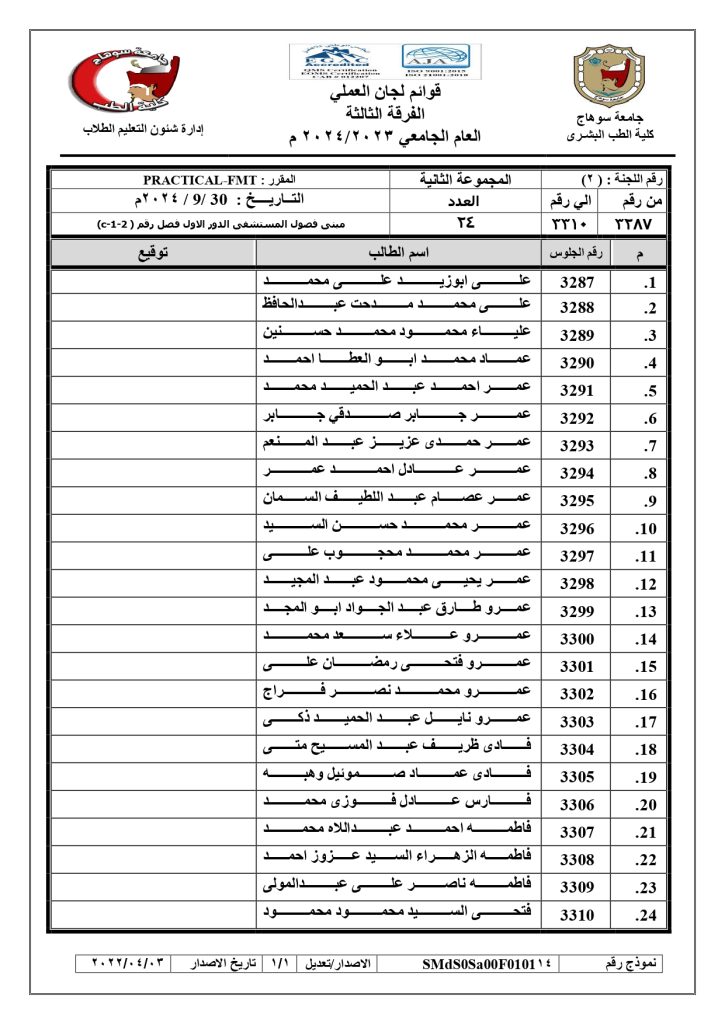 جامعة سوهاج
كلية الطب
إدارة شئون التعليم الطلاب
EGAC
Accredited
QMS Certification
EOMS Certification
CAB # 012207
AJA
ISO 9001/2015
ISO 21001-2018
قوائم لجان العملي
الفرقة الثالثة
العام الجامعي ٢٠٢٤/٢٠٢٣ م
جامعة سوهاج
كلية الطب البشرى
رقم اللجنة : (٢) المجموعة الثانية المقرر : PRACTICAL-FMT
من رقم الي رقم العدد التــاريـــخ : 30 /9 / ٢٠٢٤م
٣٢٨٧ ٣٣١٠ ٢٤ مبنى فصول المستشفى الدور الاول فصل رقم ( c-1-2)
م رقم الجلوس اسم الطالب توقيع
1. 3287 علــى ابوزيــد علــى محمــد
2. 3288 علــى محمــد مــدحت عبــدالحافظ
3. 3289 عليــاء محمــود محمــد حســنين
4. 3290 عمــاد محمــد ابــو العطــا احمــد
5. 3291 عمــر احمــد عبــد الحميــد محمــد
6. 3292 عمــر جــابر صــدقي جــابر
7. 3293 عمــر حمــدى عزيــز عبــد المــنعم
8. 3294 عمــر عــادل احمــد عمــر
9. 3295 عمــر عصــام عبــد اللطيــف الســمان
10. 3296 عمــر محمــد حســن الســيد
11. 3297 عمــر محمــد محجــوب علــى
12. 3298 عمــر يحيــى محمــود عبــد المجيــد
13. 3299 عمــرو طــارق عبــد الجــواد ابــو المجــد
14. 3300 عمــرو عــلاء ســعد محمــد
15. 3301 عمــرو فتحــى رمضــان علــى
16. 3302 عمــرو محمــد نصــر فــراج
17. 3303 عمــرو نايــل عبــد الحميــد ذكــى
18. 3304 فــادى ظريــف عبــد المســيح متــى
19. 3305 فــادى عمــاد صــموئيل وهبــه
20. 3306 فــارس عــادل فــوزى محمــد
21. 3307 فاطمــه احمــد عبــداللاه محمــد
22. 3308 فاطمــه الزهــراء الســيد عــزوز احمــد
23. 3309 فاطمــه ناصــر علــى عبــدالمولى
24. 3310 فتحــى الســيد محمــود محمــود
نموذج رقم SMdS0Sa00F010١١٤ الاصدار/تعديل ١/١ تاريخ الاصدار ٢٠٢٢/٠٤/٠٣